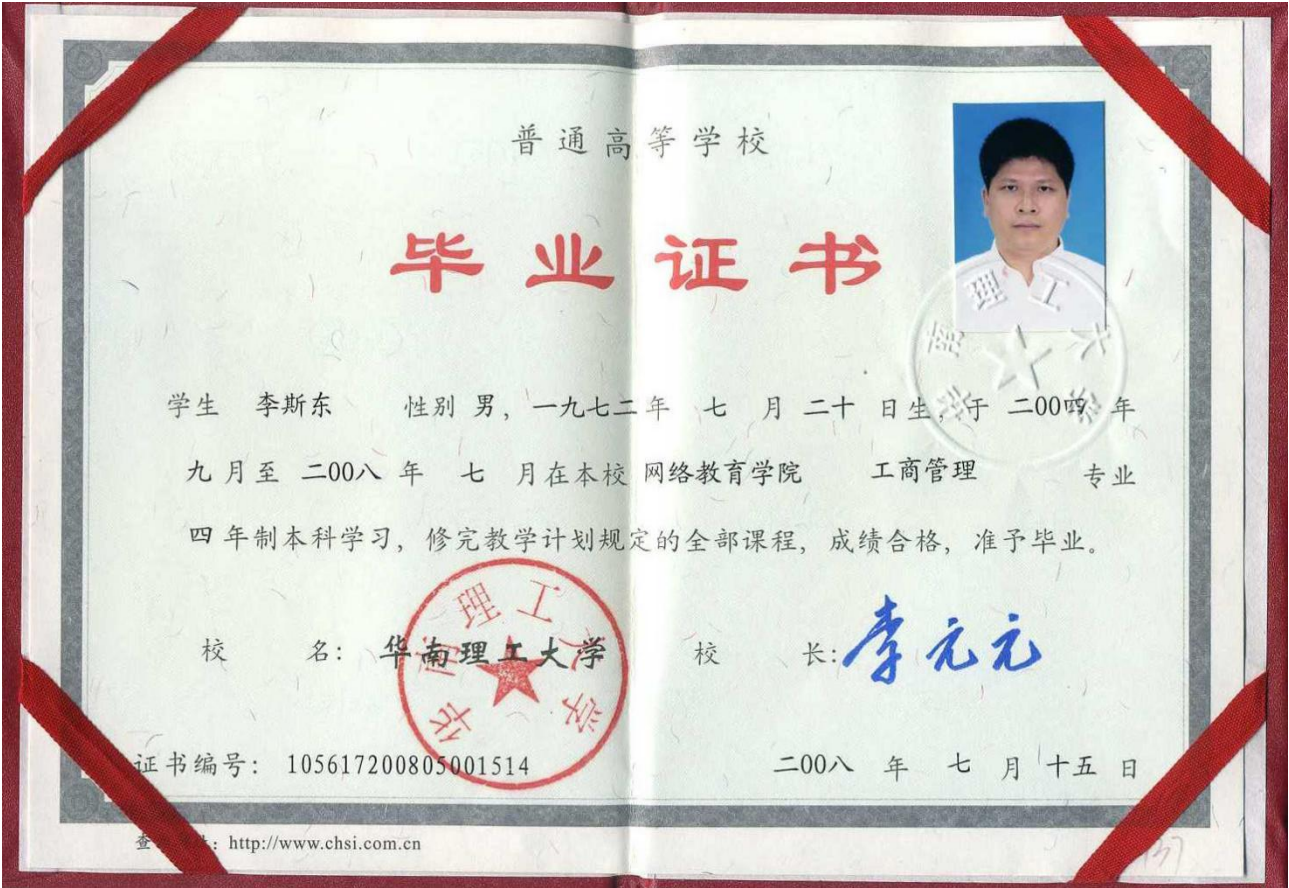 普通高等学校
毕业证书
学生 李斯东 性别 男, 一九七二年 七 月 二十 日生, 于 二00四 年
九 月至 二00八 年 七 月在本校 网络教育学院 工商管理 专业
四 年制本科学习, 修完教学计划规定的全部课程, 成绩合格, 准予毕业。
校 名: 华南理工大学 校 长: 李元元
华南理工大学
华南理工大学
证书编号: 105617200805001514 二00八 年 七 月 十五 日
查 : http://www.chsi.com.cn